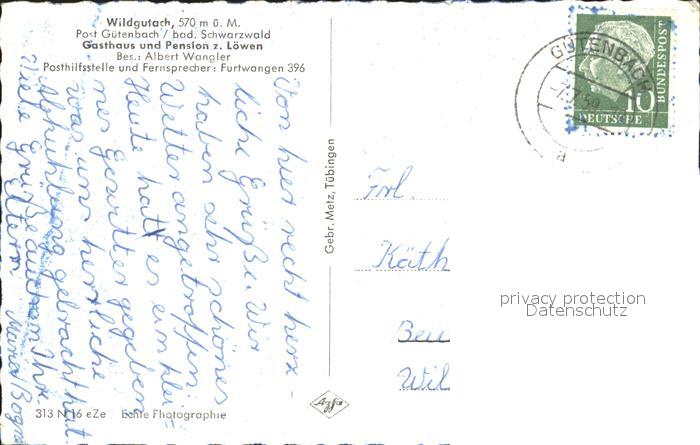 Wildgutach, 570 m ü. M.
Post Gütenbach / bad. Schwarzwald
Gasthaus und Pension z. Löwen
Bes.: Albert Wangler
Posthilfsstelle und Fernsprecher: Furtwangen 396
Von hier recht herz-
liche Grüße. Wir
haben sehr schönes
Wetter angetroffen
Heute hatt es ein klei-
nes Gewitter gegeben
was uns herrliche
Abkühlung gebracht hat.
Viele Grüße auch an Ihre
Eltern
Gebr. Metz, Tübingen
313 N 16 eZe Echte Photographie
Agfa
GÜTENBACH
10
DEUTSCHE
BUNDESPOST
Frl.
Käth
Wil
privacy protection
Datenschutz